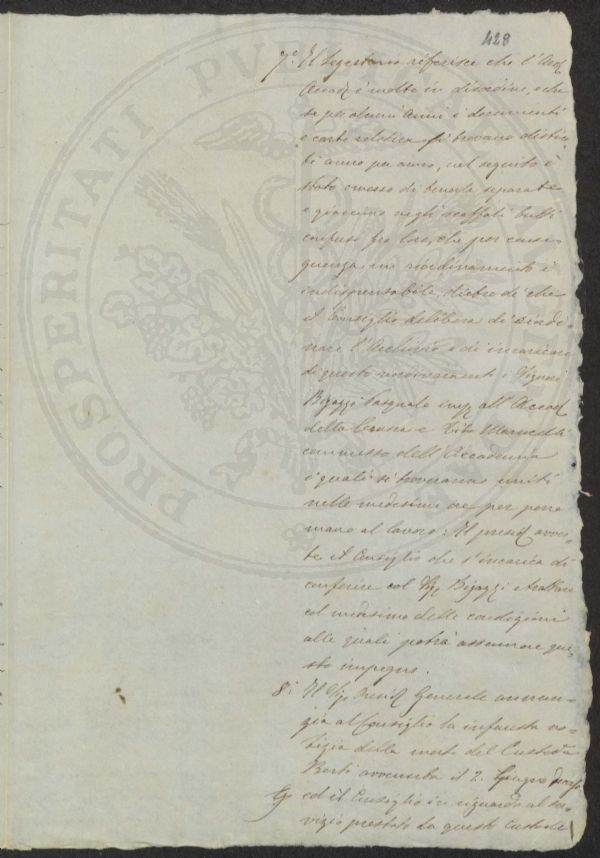 428
7° Il Segretario riferisce che l'Arch
Accad è molto in disordine, e che
se per alcuni anni i documenti
e carte relative si trovano distin-
ti anno per anno, nel seguito è
stato omesso di tenerle separate
e giacciono negli scaffali tutti
confusi fra loro, che per conse-
guenza un riordinamento è
indispensabile, dietro di che
il Consiglio delibera di riordi-
nare l'Archivio e di incaricare
di questo riordinamento i Signori
Bigazzi Pasquale imp all'Accad
della Crusca e Tito Marucelli
commesso dell'Accademia
i quali si troveranno uniti
nelle medesime ore per porre
mano al lavoro; Il presid avver-
te il Consiglio che s'incarica di
conferire col Sig Bigazzi e trattare
col medesimo delle condizioni
alle quali potrà assumere que-
sto impegno.
8° Il Sig Presid Generale annun-
zia al Consiglio la infausta no-
tizia della morte del Custode
Berti avvenuta il 2. Giugno decorso
ed il Consiglio in riguardo al ser-
vizio prestato da questo Custode
PROSPERITATI PUBLICAE